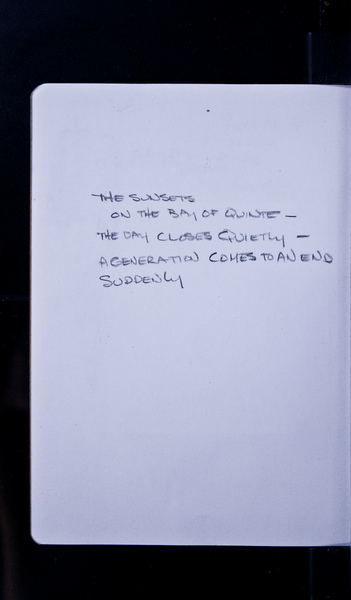 THE SUNSETS
ON THE BAY OF QUINTE —
THE DAY CLOSES QUIETLY —
A GENERATION COMES TO AN END
SUDDENLY